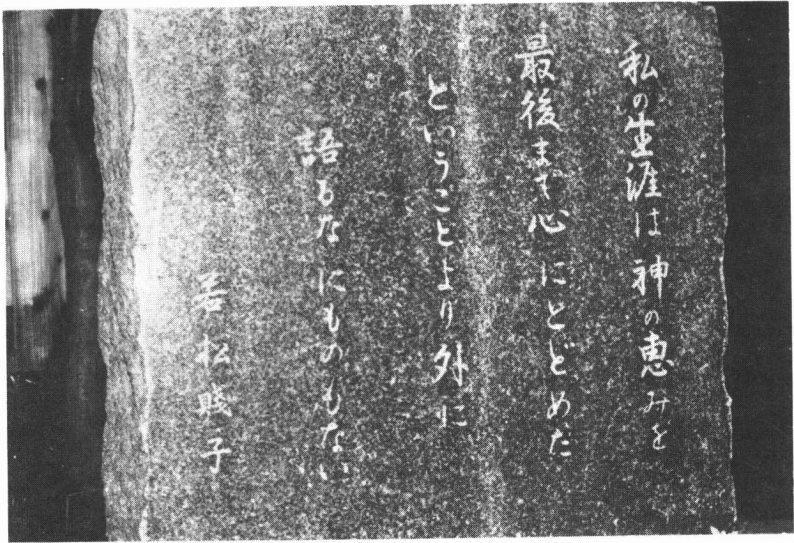 私の生涯は神の恵みを
最後まで心にとどめた
ということより外に
語るなにものもない
若松賤子